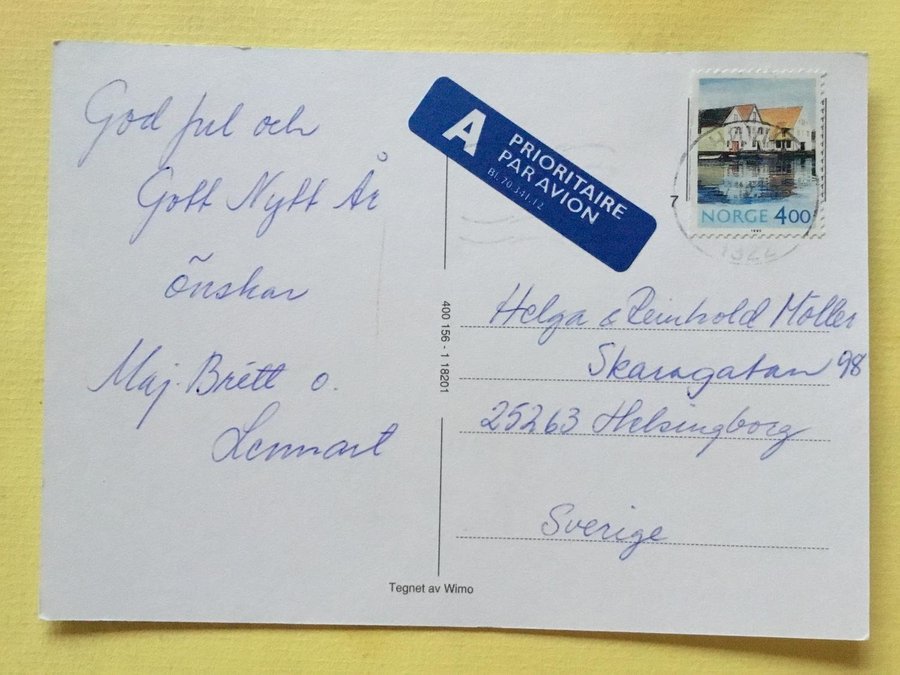 God jul och
Gott Nytt År
önskar
Maj-Britt o.
Lennart
A
PRIORITAIRE
PAR AVION
Bl. 70.341.12
7
NORGE 4.00
1995
1322
400 156 - 1 18201
Helga & Reinhold Möller
Skaragatan 98
25263 Helsingborg
Sverige
Tegnet av Wimo